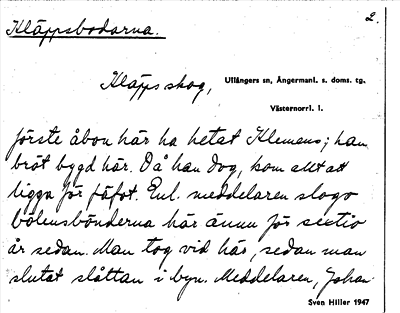 2.
Kläppsbodarna.
Kläpps skog, Ullångers sn, Ångermanl. s. doms. tg.
Västernorrl. l.
förste åbon här ha hetat Klemens; han
bröt bygd här. Då han dog, kom allt att
ligga för fäfot. Enl. meddelaren slogo
bölensbönderna här ännu för sextio
år sedan. Man tog vid här, sedan man
slutat slåttan i byn. Meddelaren, Johan
Sven Hiller 1947